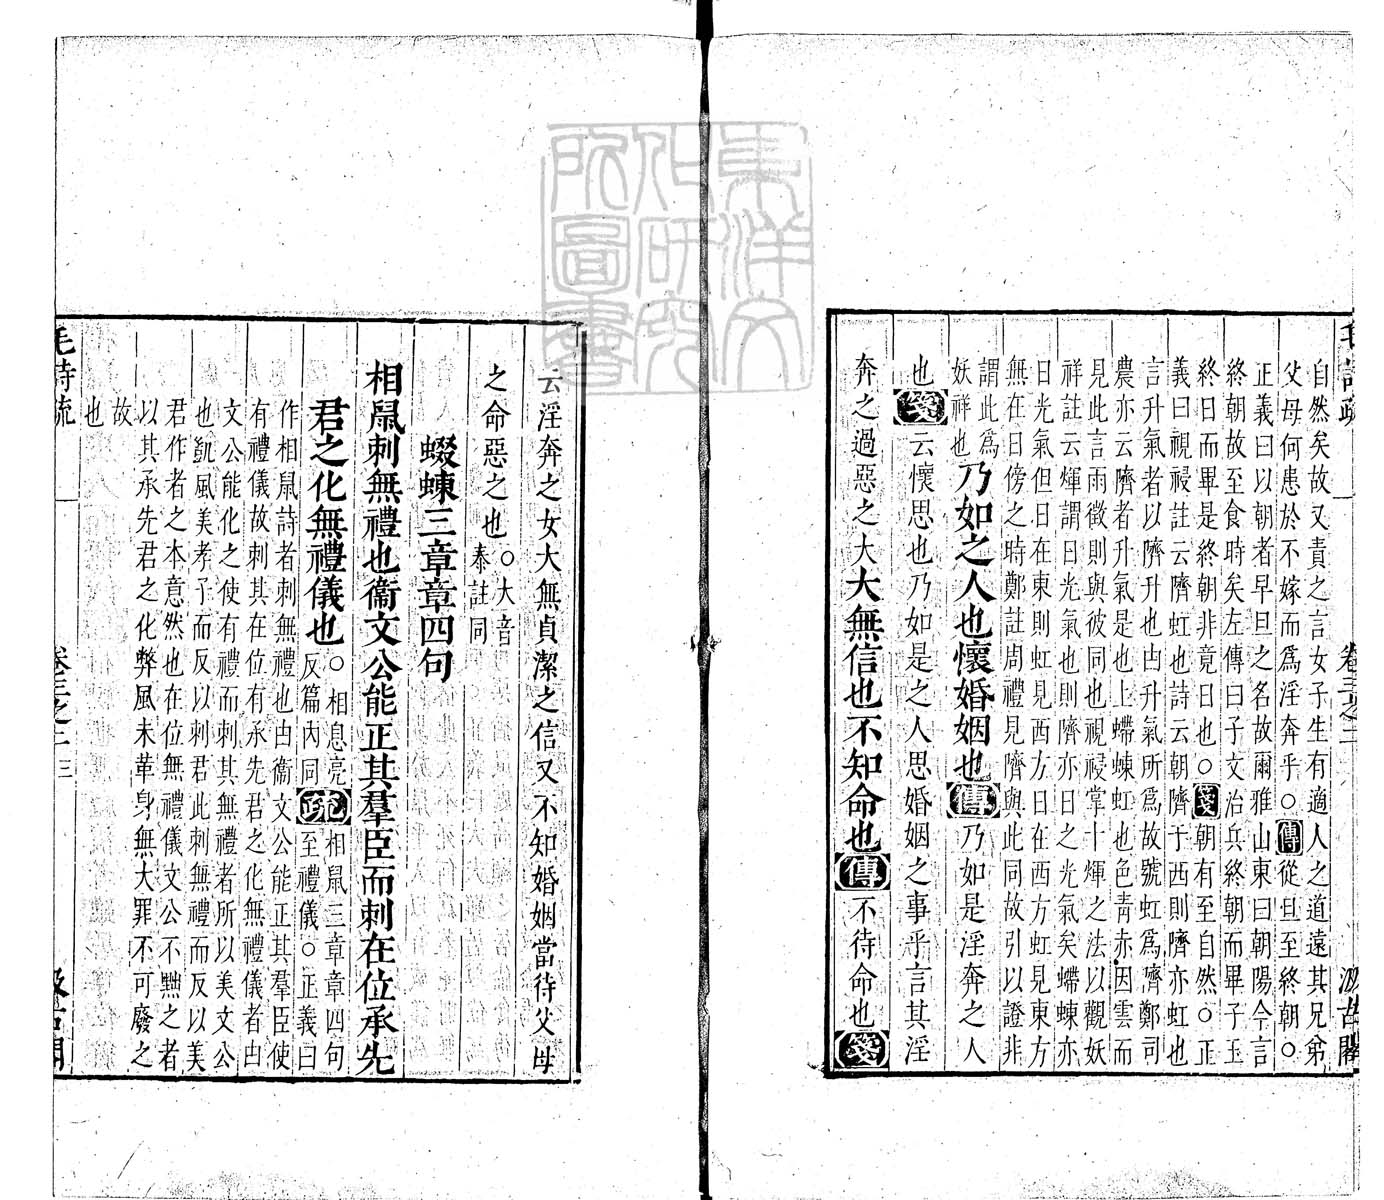 自然矣故又責之言女子生有適人之道遠其兄弟
父母何患於不嫁而爲淫奔乎○傳從旦至終朝○
正義曰以朝者早旦之名故爾雅山東曰朝陽今言
終朝故至食時矣左傳曰子文治兵終朝而畢子玉
終日而畢是終朝非竟日也○箋朝有至自然○正
義曰視祲註云隮虹也詩云朝隮于西則隮亦虹也
言升氣者以隮升也由升氣所爲故號虹爲隮鄭司
農亦云隮者升氣是也上螮蝀虹也色青赤因雲而
見此言雨徵則與彼同也視祲掌十煇之法以觀妖
祥註云煇謂日光氣也則隮亦日之光氣矣螮蝀亦
日光氣但日在東則虹見西方日在西方虹見東方
無在日傍之時鄭註周禮見隮與此同故引以證非
謂此爲
妖祥也乃如之人也懷婚姻也傳乃如是淫奔之人
也箋云懷思也乃如是之人思婚姻之事乎言其淫
奔之過惡之大大無信也不知命也傳不待命也箋
云淫奔之女大無貞潔之信又不知婚姻當待父母
之命惡之也○大音
泰註同
蝃蝀三章章四句
相鼠刺無禮也衞文公能正其羣臣而刺在位承先
君之化無禮儀也○相息亮
反篇內同疏相鼠三章章四句
至禮儀○正義曰
作相鼠詩者刺無禮也由衞文公能正其羣臣使
有禮儀故刺其在位有承先君之化無禮儀者由
文公能化之使有禮而刺其無禮者所以美文公
也凱風美孝子而反以刺君此刺無禮而反以美
君作者之本意然也在位無禮儀文公不黜之者
以其承先君之化弊風未革身無大罪不可廢之
故
也
毛詩疏
卷三之二
三
汲古閣
東洋文
化研究
所圖書